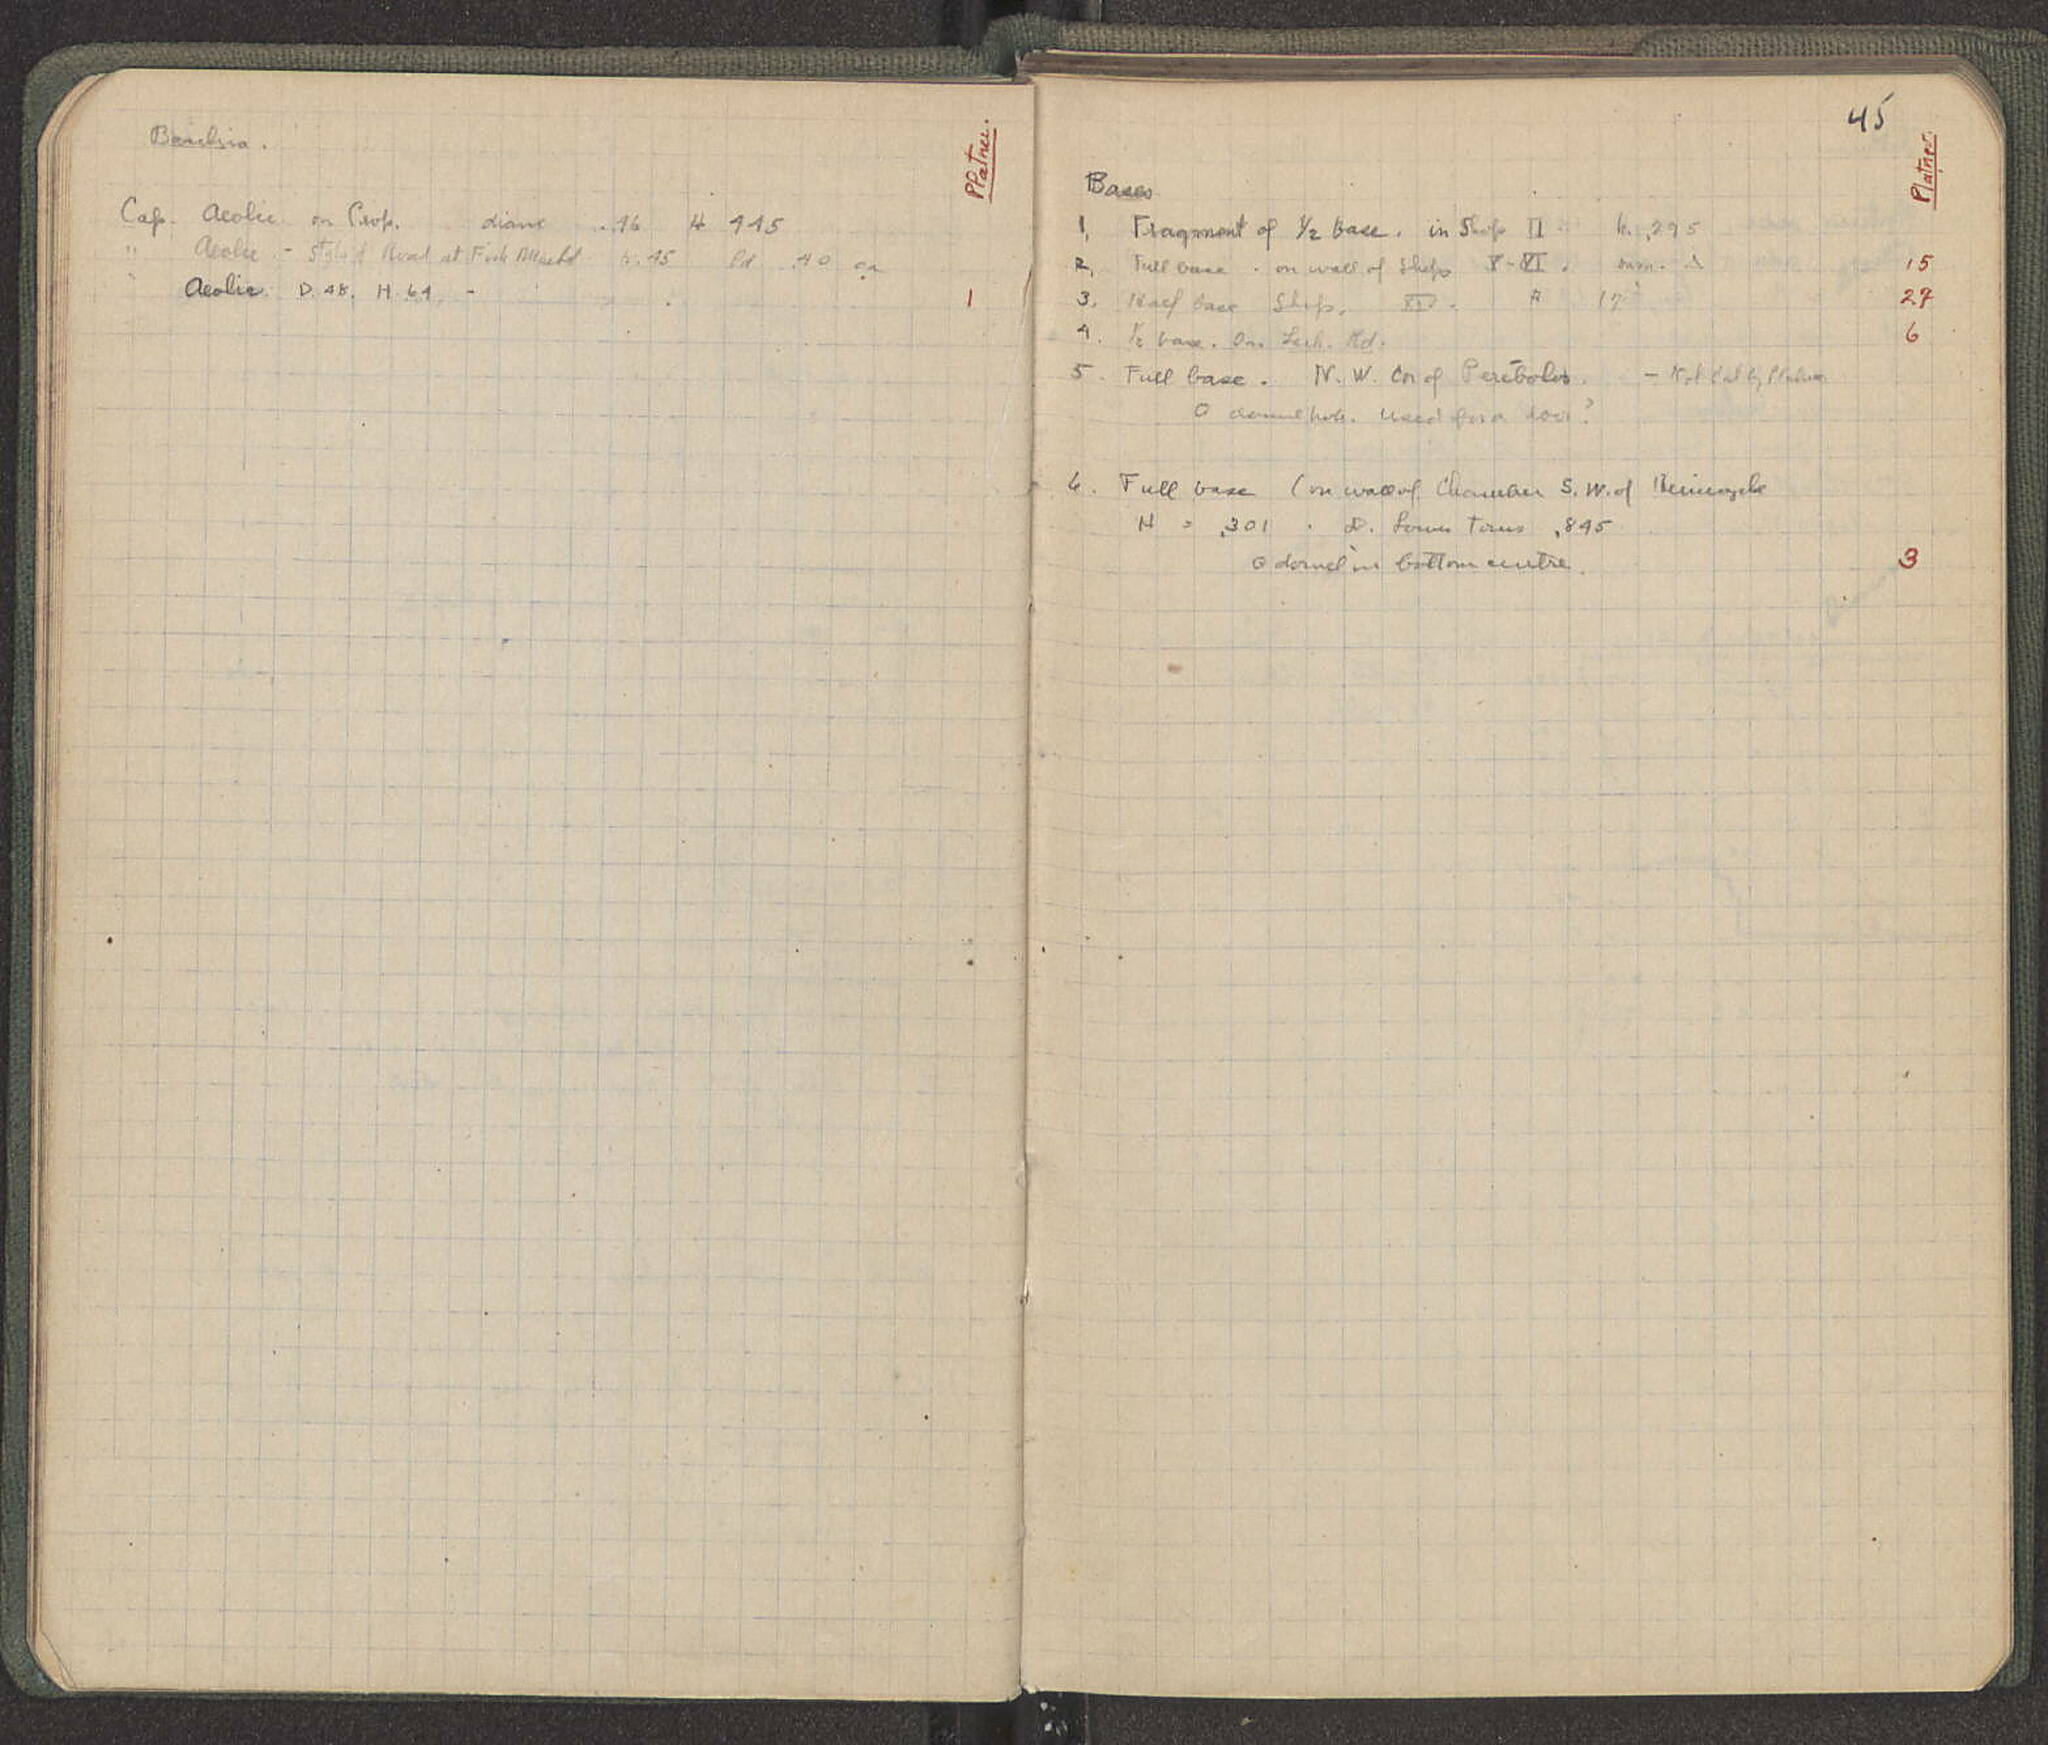 Platner.
Cap. Aeolic on Prop. diam .46 H 445
" Aeolic - Style of Road at Fish Market h. .45 ld .40 ca
" Aeolic D .48. H .64 - 1
45
Platner.
Bases
1. Fragment of 1/2 base. in Shop II h. .295
2. Full base. on wall of Shops V-VI. 15
3. Half base Shop. 27
4. 1/2 base. On Lech. Rd. 6
5. Full base. N. W. Cor of Peribolos. - Not Cat by Platner
dowel hole. used for a door?
6. Full base (on wall of Chamber S. W. of Hemicycle
H = .301 . D. Lower Torus .845
dowel in bottom centre. 3